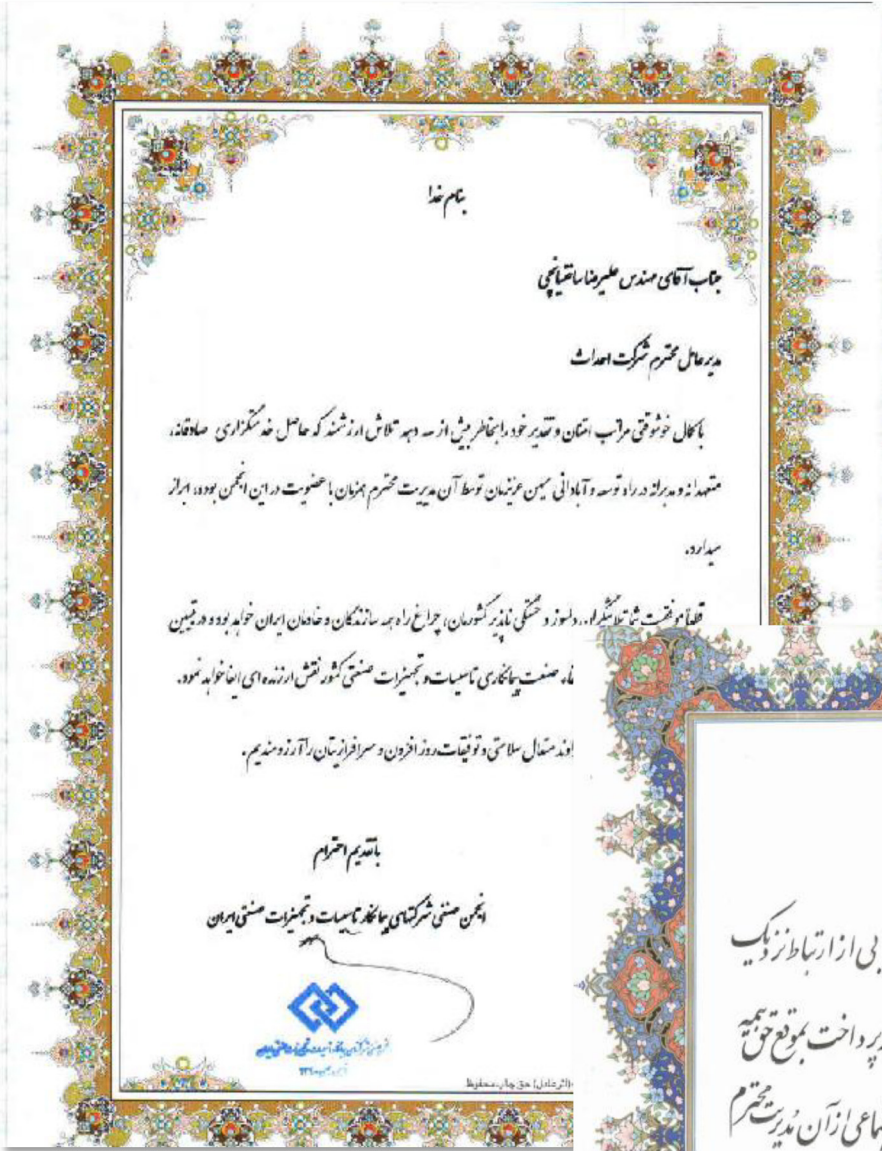 بنام خدا
جناب آقای مهندس علیرضا ساعتیانچی
مدیر عامل محترم شرکت احداث
با کمال خوشوقتی مراتب امتنان و تقدیر خود را بخاطر بیش از سه دهه تلاش ارزشمند که حاصل خدمتگزاری صادقانه،
متعهدانه و مدبرانه در راه توسعه و آبادانی میهن عزیزمان توسط آن مدیریت محترم همزمان با عضویت در این انجمن بوده، ابراز
میدارد.
قطعاً موفقیت شما تلاشگران دلسوز و خستگی ناپذیر کشورمان، چراغ راه همه سازندگان و خادمان ایران خواهد بود و در تبیین
صنعت پیمانکاری تاسیسات و تجهیزات صنعتی کشور نقش ارزنده ای ایفا خواهد نمود.
متعال سلامتی و توفیقات روز افزون و سرافرازیتان را آرزومندیم.
با تقدیم احترام
انجمن صنفی شرکتهای پیمانکار تاسیسات و تجهیزات صنعتی ایران
حق چاپ محفوظ
از ارتباط نزدیک
پرداخت بموقع حق بیمه
از آن مدیریت محترم